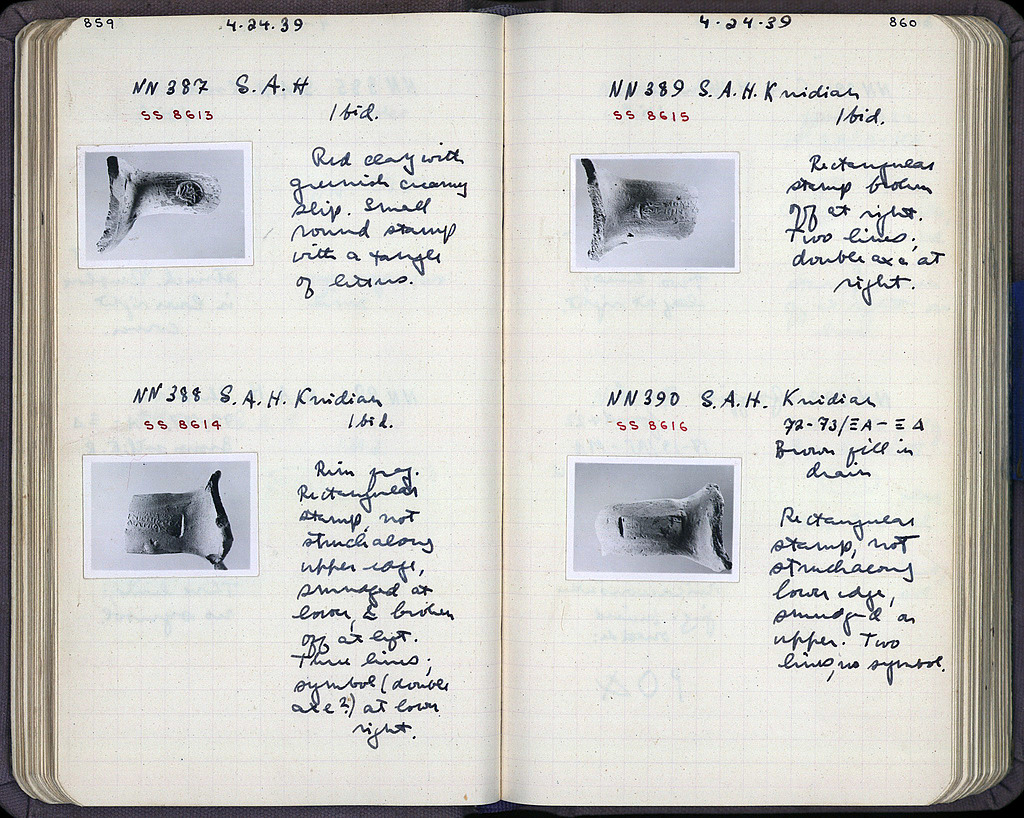 859
4-24-39
NN 387 S.A.H
SS 8613
Ibid.
Red clay with
greenish creamy
slip. Small
round stamp
with a tangle
of letters.
NN 388 S.A.H. Knidian
SS 8614
Ibid.
Rim frag.
Rectangular
stamp, not
struck along
upper edge,
smudged at
lower, & broken
off at left.
Three lines;
symbol (double
axe?) at lower
right.
4-24-39
860
NN 389 S.A.H. Knidian
SS 8615
Ibid.
Rectangular
stamp broken
off at right.
Two lines;
double axe at
right.
NN 390 S.A.H. Knidian
SS 8616
72-73/ΞΑ-ΞΔ
Brown fill in
drain
Rectangular
stamp, not
struck along
lower edge,
smudged on
upper. Two
lines, no symbol.